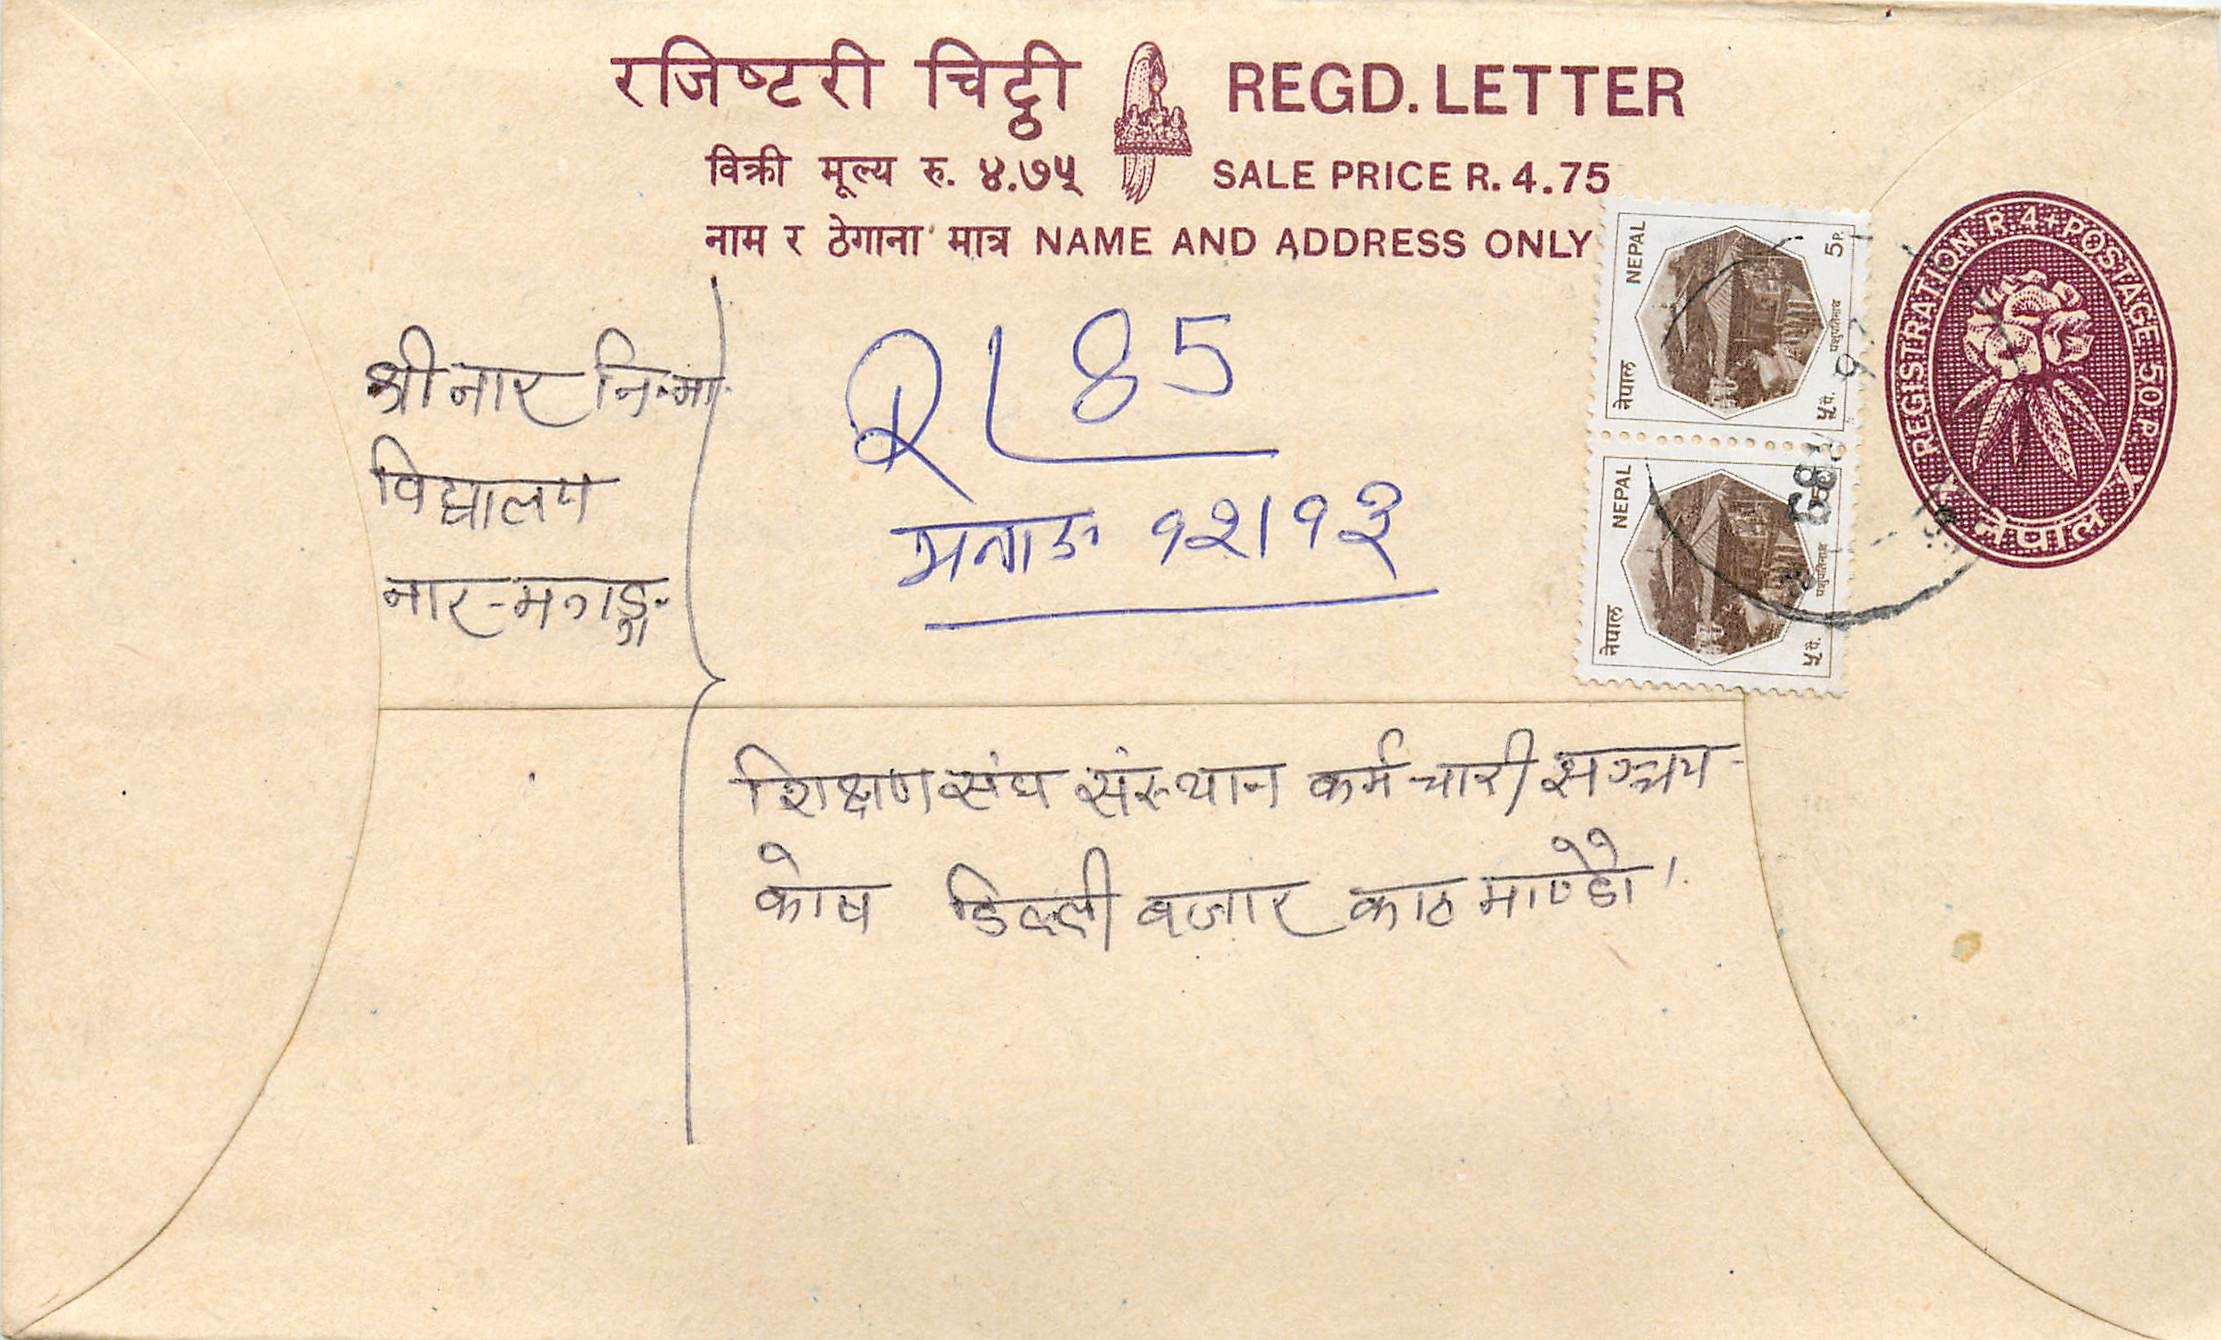 रजिष्टरी चिट्ठी REGD. LETTER
विक्री मूल्य रु. ४.७५ SALE PRICE R. 4.75
नाम र ठेगाना मात्र NAME AND ADDRESS ONLY
REGISTRATION R. 4 + POSTAGE 50 P.
नेपाल
NEPAL 5 P.
नेपाल पशुपतिनाथ ५ पै.
NEPAL
नेपाल पशुपतिनाथ ५ पै.
श्री नार नि.मा.
विद्यालय
नार-मनाङ्ग
RL 85
मनाङ १२।१३
शिक्षण संघ संस्थान कर्मचारी सञ्चय-
कोष डिल्ली बजार काठमाण्डौ।